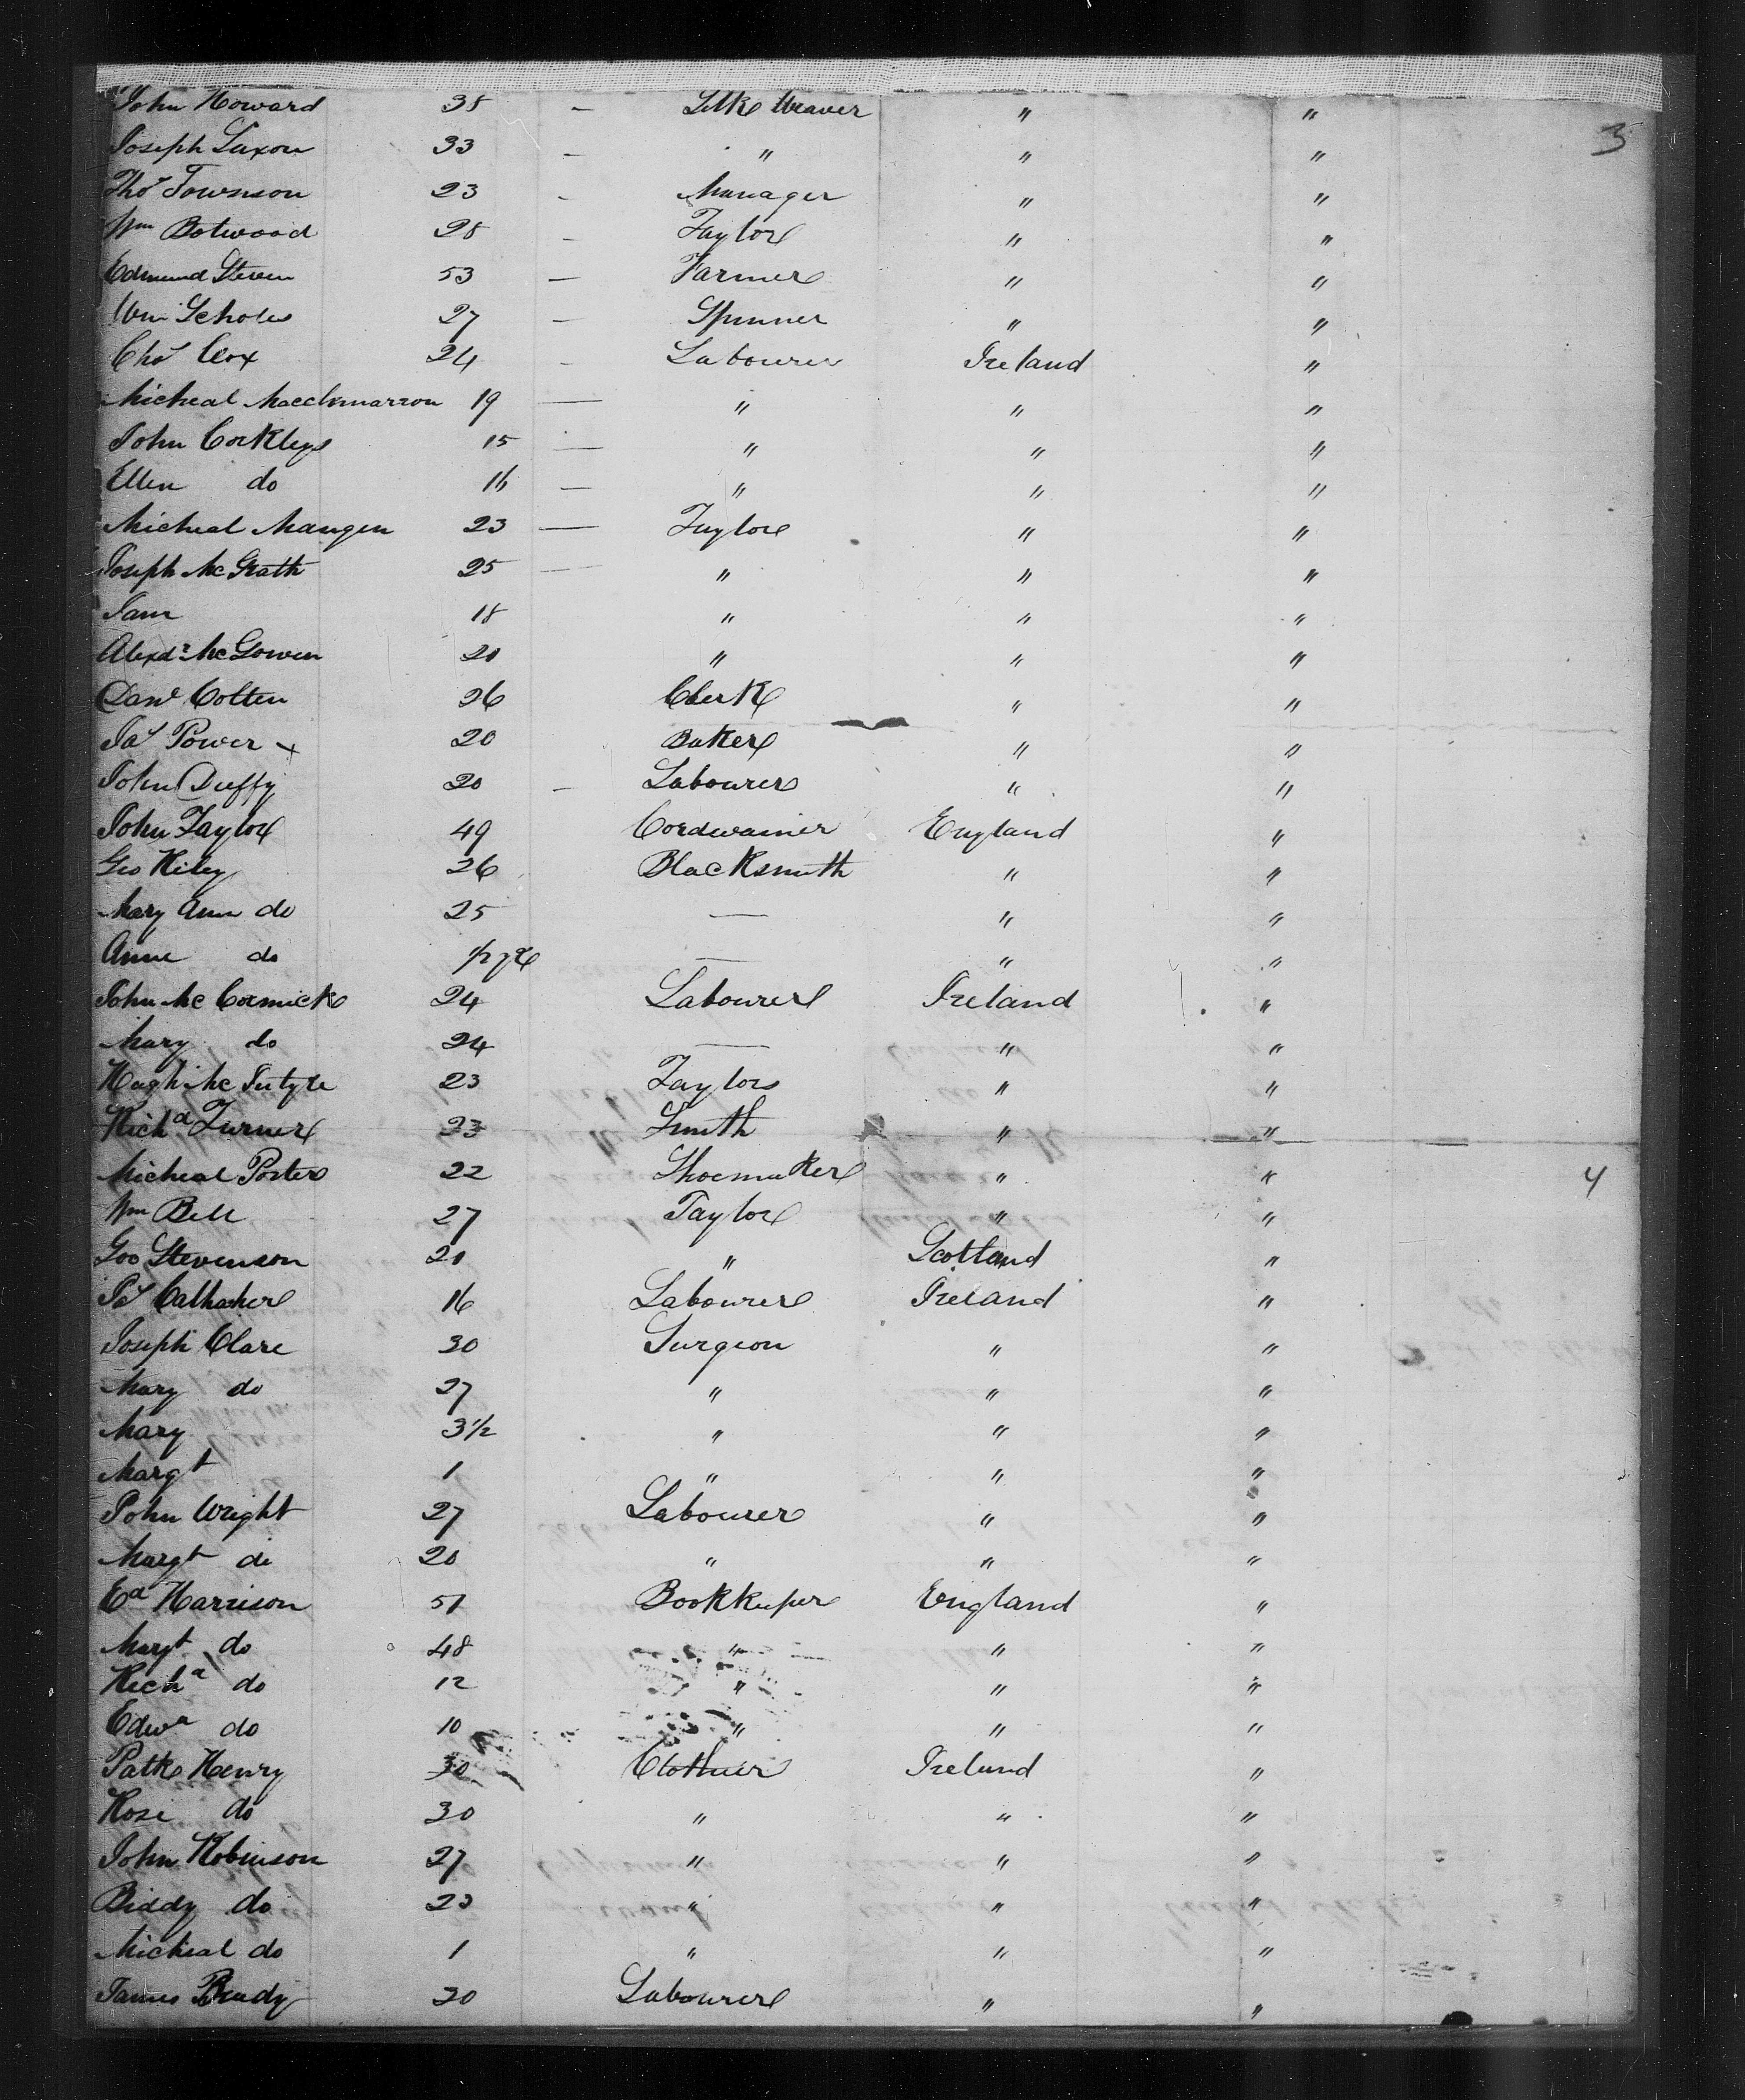 John Howard 38 — Silk Weaver " " 3
Joseph Saxon 33 — " " "
Thos Townson 23 - Manager " "
Wm Botwood 28 - Taylor " "
Edmund Steven 53 — Farmer " "
Wm Scholes 27 — Spinner " "
Chs Cox 24 - Labourer Ireland "
Micheal 19 — " " "
John Corkleys 15 — " " "
Ellen do 16 — " " "
Micheal Mangen 23 — Taylor " "
Joseph McGrath 25 — " " "
Sam 18 " " "
Alexdr McGowen 20 " " "
Danl Colten 26 Clerk " "
Jas Power x 20 Baker " "
John Duffy 20 - Labourer " "
John Taylor 49 Cordwainer England "
Geo Kiley 26 Blacksmith " "
Mary Ann do 25 — " "
Anne do 1/2 yr — " "
John McCormick 24 Labourer Ireland "
Mary do 24 — " "
Hugh McIntyre 23 Taylor " "
Richd Turner 23 Smith " "
Micheal Porter 22 Shoemaker " " 4
Wm Bell 27 Taylor " "
Geo Stevenson 20 " Scotland "
16 Labourer Ireland "
Joseph Clare 30 Surgeon " "
Mary do 27 " " "
Mary 3 1/2 " " "
Margt 1 " " "
John Wright 27 Labourer " "
Margt do 20 " " "
Ed Harrison 51 Bookkeeper England "
Margt do 48 " " "
Richd do 12 " " "
Edwd do 10 " " "
Patk Henry 30 Clothier Ireland "
Rose do 30 " " "
John Robinson 27 " " "
Biddy do 23 " " "
Micheal do 1 " " "
James Brady 30 Labourer " "